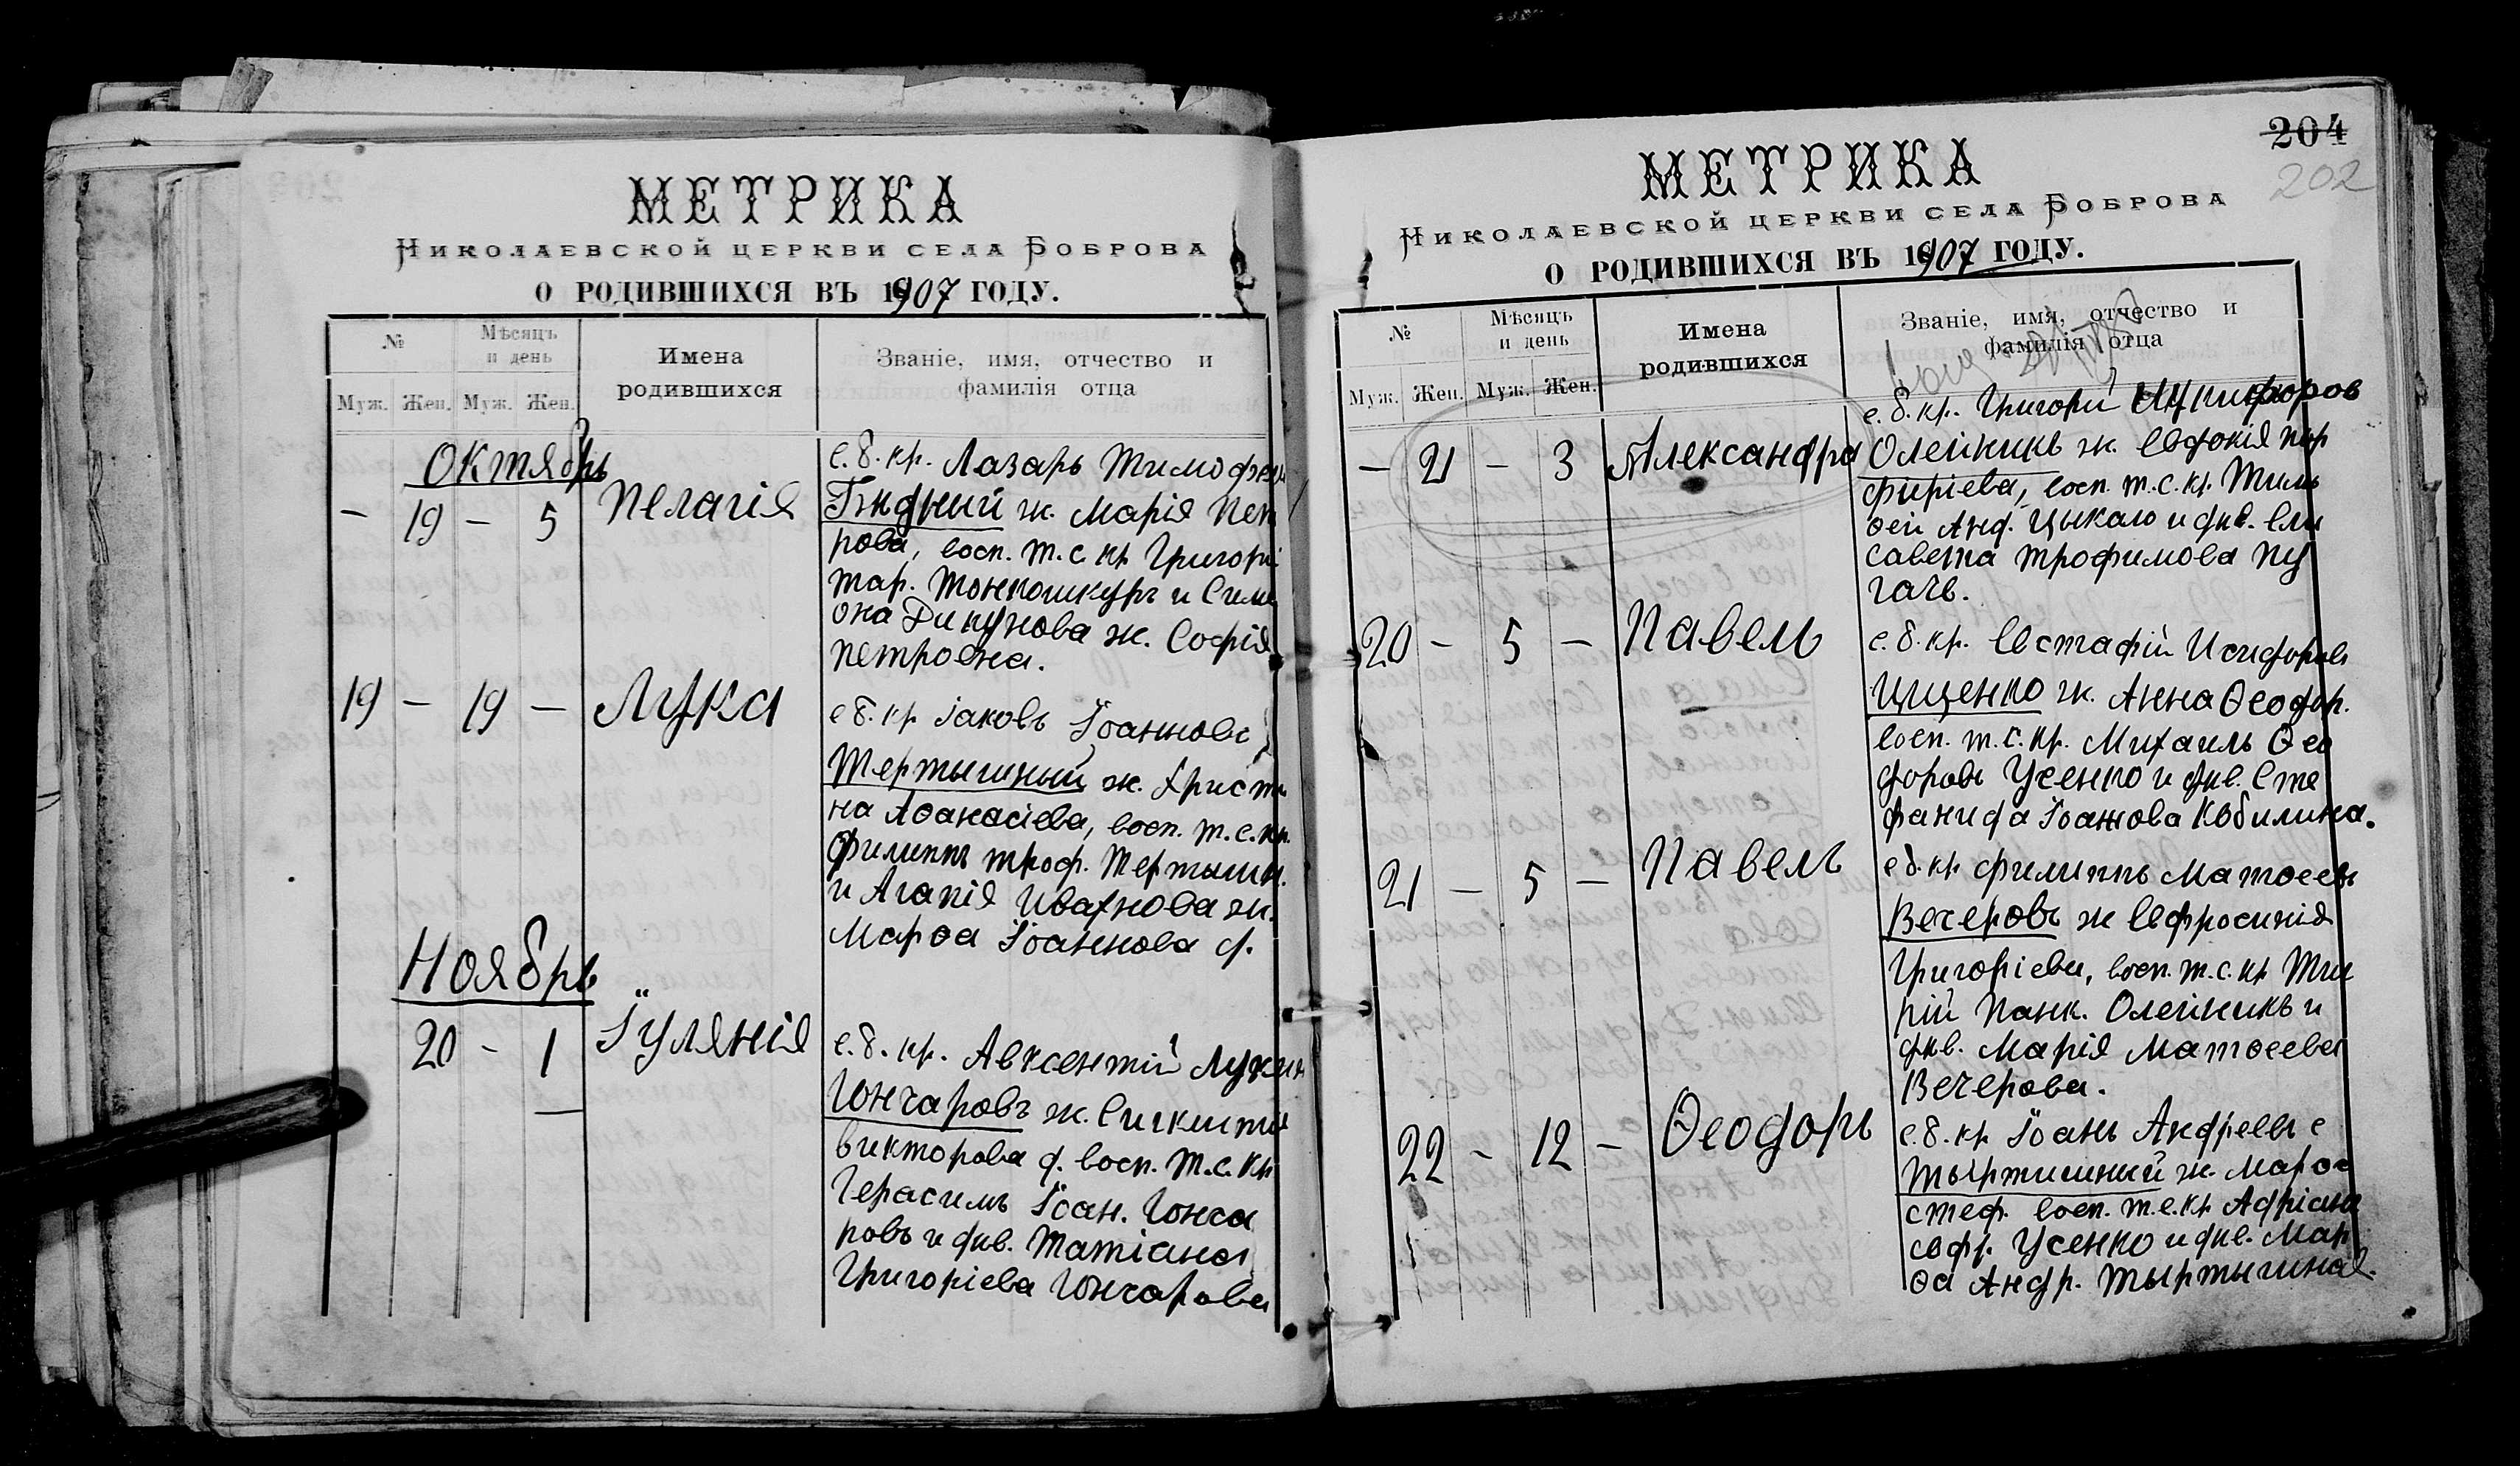 МЕТРИКА
Николаевской церкви села Боброва
О РОДИВШИХСЯ ВЪ 1907 ГОДУ.
№
Мѣсяцъ и день
Имена родившихся
Званіе, имя, отчество и фамилія отца
Муж. Жен. Муж. Жен.
Октябрь
– 19 – 5 Пелагія
с. б. кр. Лазарь Тимофеев
Бидный ж. Марія Пет
рова, восп. т. с. кр. Григорій
тар. Тонкошкуръ и Сим
она Дикунова ж. Софія
Петровна.
19 – 19 – Лука
с б. кр Іаковъ Іоанновъ
Тертышный ж. Христи
на Аѳанасіева, восп. т. с. кр.
Филиппъ троф. Тертышн.
и Агапія Ивахнова ж.
Марѳа Іоаннова д.
Ноябрь
20 – 1 Іуліянія
с. б. кр. Авксентій Лукин
Гончаровъ ж.
викторова д. восп. т. с. кр
Герасимъ Іоан. Гонча
ровъ и дѣв. Татіана
Григоріева Гончарова
204
202
МЕТРИКА
Николаевской церкви села Боброва
О РОДИВШИХСЯ ВЪ 1907 ГОДУ.
№
Мѣсяцъ и день
Имена родившихся
Званіе, имя, отчество и фамилія отца
Муж. Жен. Муж. Жен.
– 21 – 3 Александра
с. б. кр. Григорій Никифоров
Олейникъ ж. Евдокія пор
фиріева, восп. т. с. кр. Тимо
ѳей Анд. Цыкало и дѣв. Ели
савета трофимова Пу
гачъ.
20 – 5 – Павелъ
с. б. кр. Евстафій Исидоровъ
Ищенко ж. Анна Ѳеодор.
восп. т. с. кр. Михаилъ Ѳео
доровъ Усенко и дѣв. Сте
фанида Іоаннова Кобилина.
21 – 5 – Павелъ
с б. кр Филиппъ Матѳеевъ
Вечеровъ ж Евфросинія
Григоріева, восп. т. с. кр
рій Панк. Олейникъ и
дѣв. Марія Матѳеева
Вечерова.
22 – 12 – Ѳеодоръ
с. б. кр Іоанъ Андреевъ с
тыртишный ж. Марѳа
стеф. восп. т. с. кр Адріанъ
Усенко и дѣв. Мар
ѳа Андр. Тыртышная.